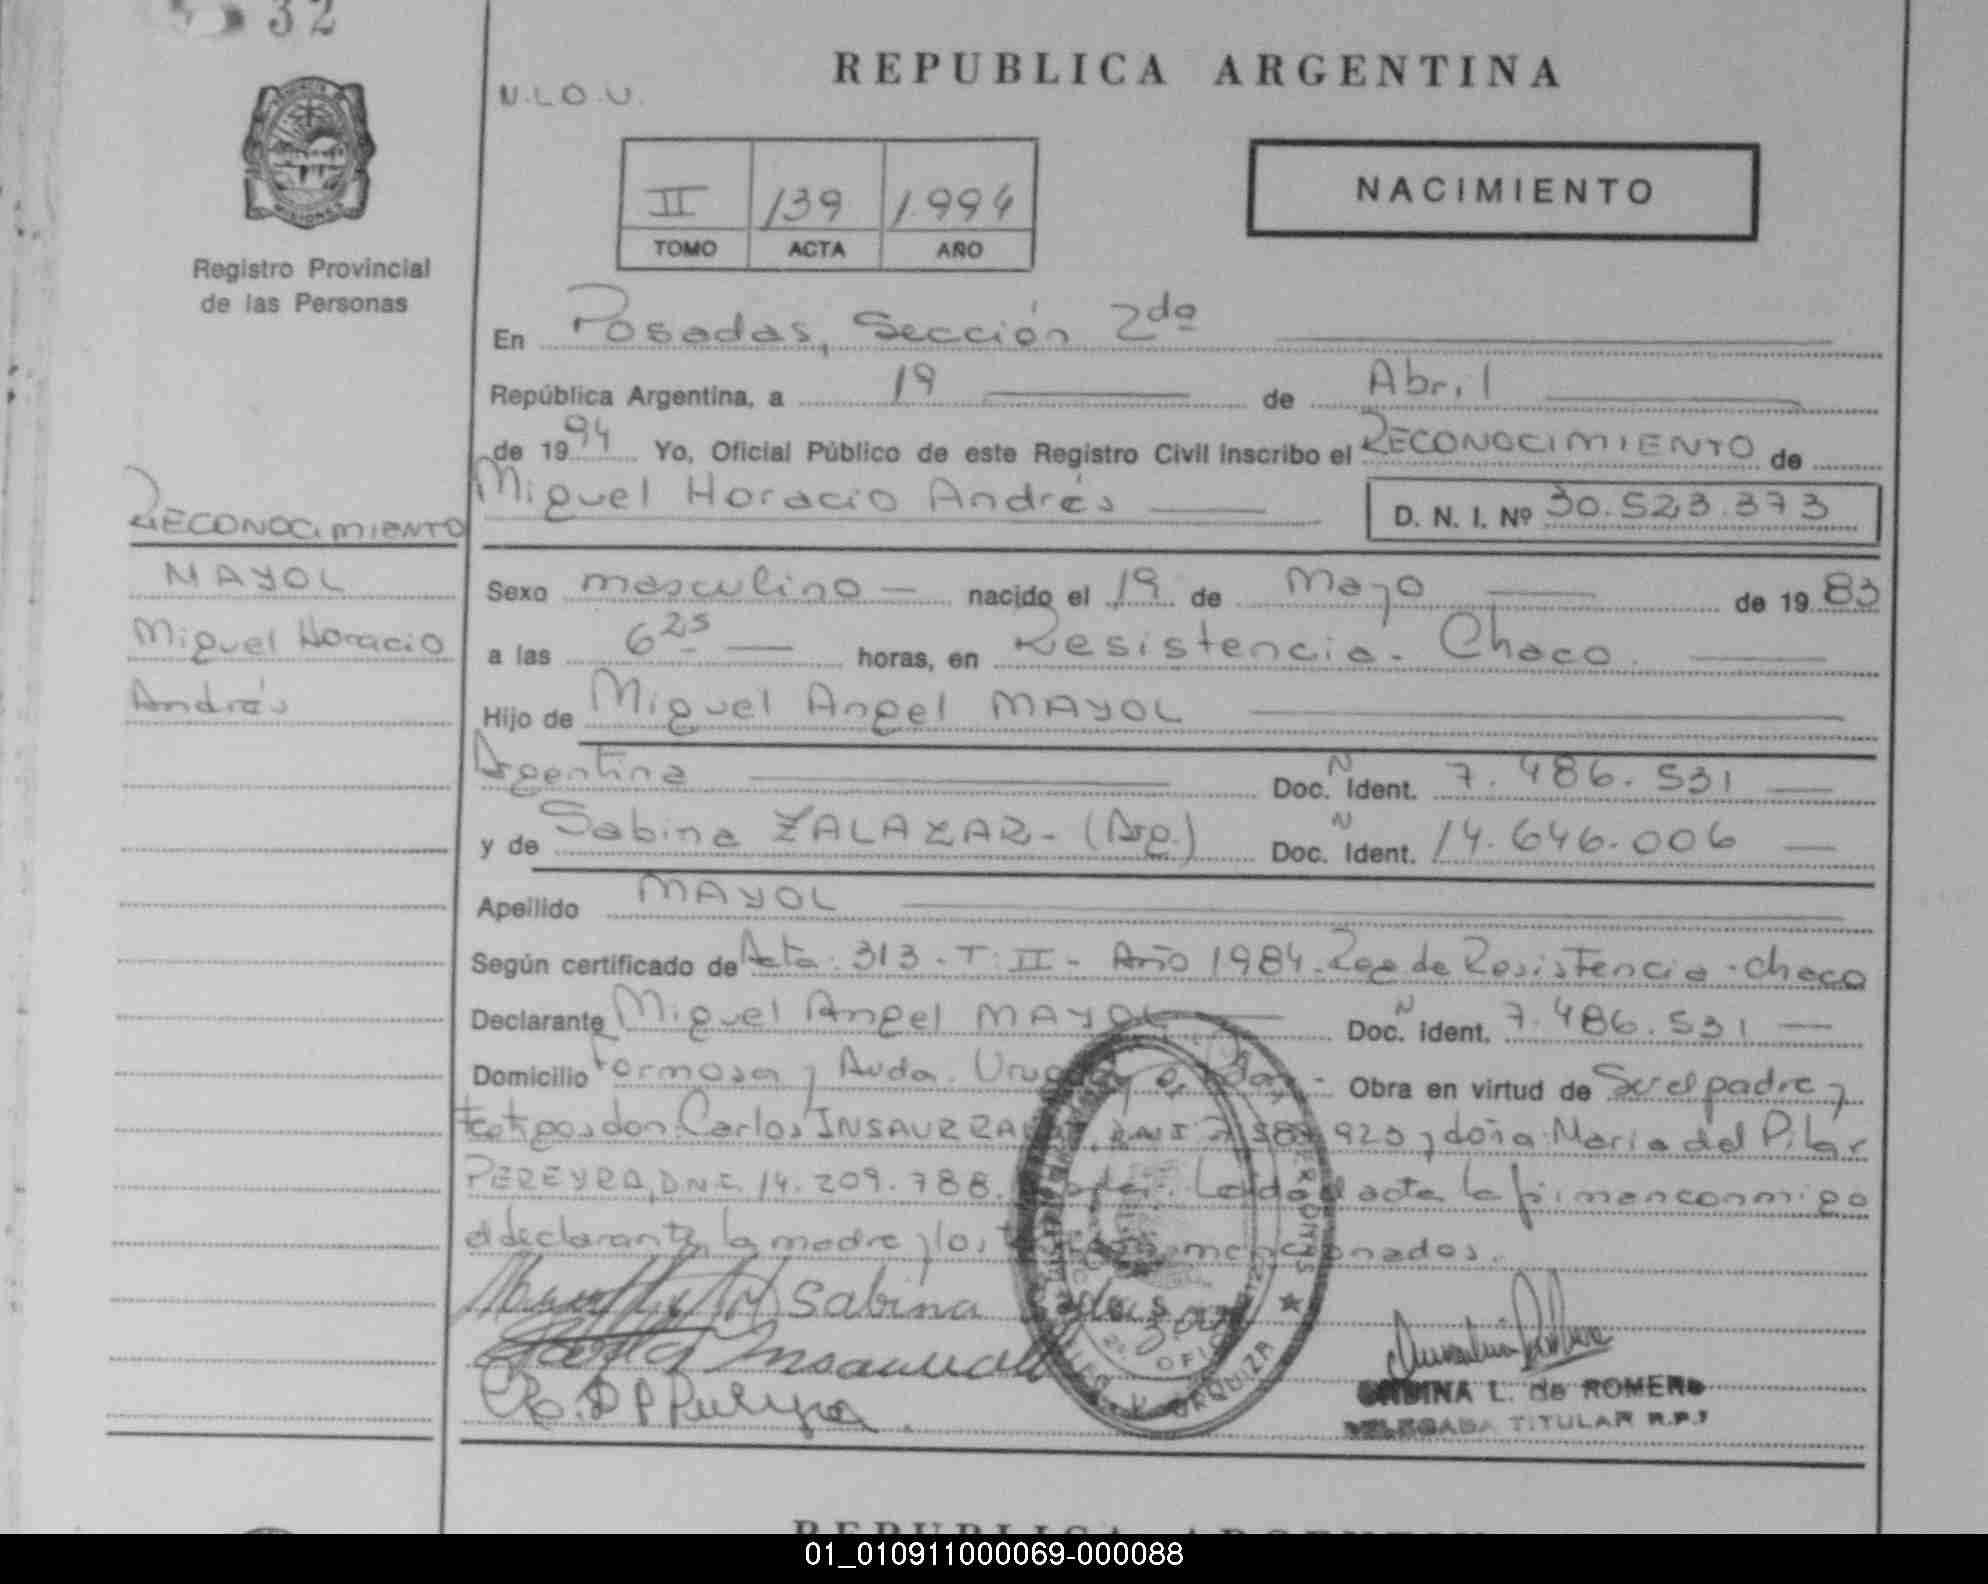 32
N.L.O.U.
REPUBLICA ARGENTINA
MISIONES
Registro Provincial
de las Personas
II 139 1.994
TOMO ACTA AÑO
NACIMIENTO
En Posadas, Sección 2da
República Argentina, a 19 de Abril
de 1994 Yo, Oficial Público de este Registro Civil inscribo el RECONOCIMIENTO de
Miguel Horacio Andrés D. N. I. Nº 30.523.373
RECONOCIMIENTO
MAYOL
Miguel Horacio
Andrés
Sexo masculino nacido el 19 de Mayo de 1983
a las 6 25 horas, en Resistencia - Chaco.
Hijo de Miguel Angel MAYOL
Argentina Doc. N Ident. 7.486.531
y de Sabina ZALAZAR - (Arg.) Doc. N Ident. 14.646.006
Apellido MAYOL
Según certificado de Acta: 313 - T: II - Año 1984. Reg de Resistencia - Chaco
Declarante Miguel Angel MAYOL Doc. N ident. 7.486.531
Domicilio Formosa y Avda. Obra en virtud de Ser el padre y
testigos don Carlos 925 y doña María del Pilar
PEREYRA, D.N.I. 14.209.788. Leída el acta la firman conmigo
el declarante, la madre y los mencionados.
Sabina
OFIC
URQUIZA
L. de ROMERO
DELEGADA TITULAR R.P.
REPUBLICA ARGENTINA
01_010911000069-000088